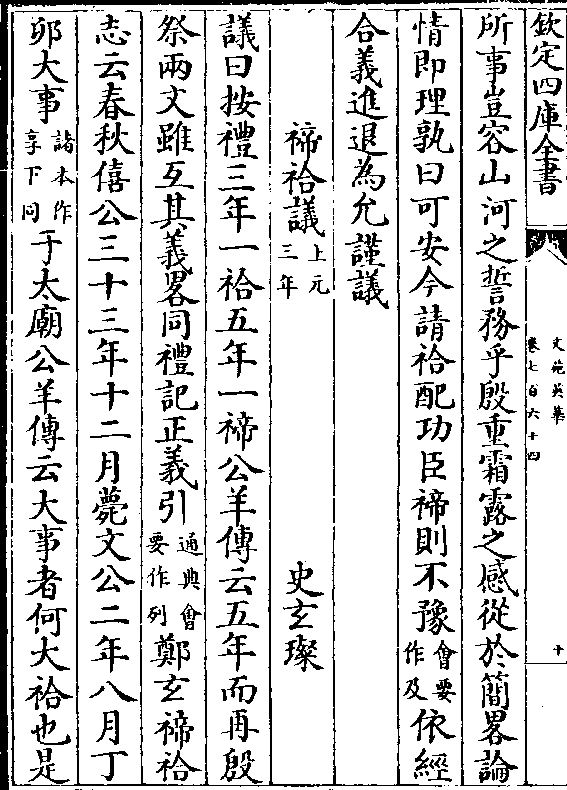 欽定四庫全書
文苑英華
卷七百六十四
十
所事豈容山河之誓務乎殷重霜露之感從於簡畧論
情即理孰曰可安今請祫配功臣禘則不豫會要作及依經
合義進退為允謹議
禘祫議上元三年 史玄璨
議曰按禮三年一祫五年一禘公羊傳云五年而再殷
祭兩文雖互其義畧同禮記正義引通典會要作列鄭玄禘祫
志云春秋僖公三十三年十二月薨文公二年八月丁
夘大事諸本作享下同于太廟公羊傳云大事者何大祫也是